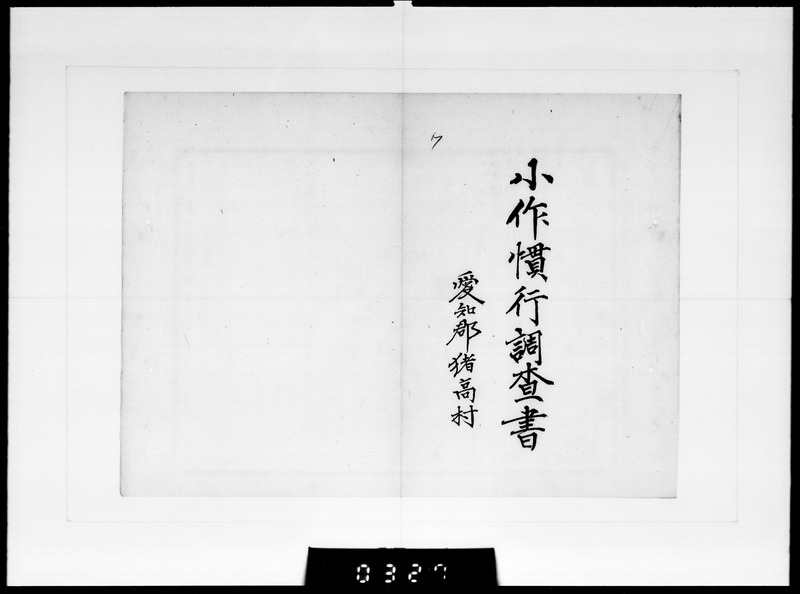 小作慣行調査書
愛知郡猪高村
0327